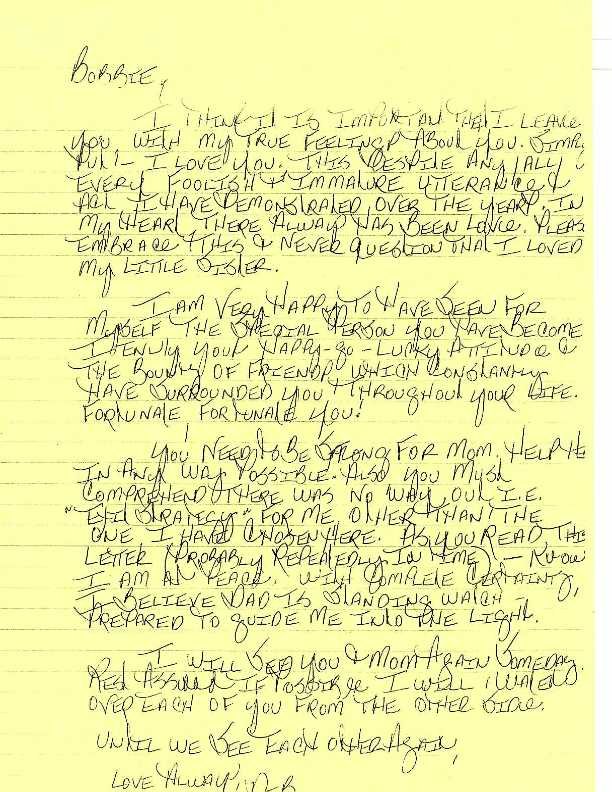 Bobbie,
I think it is important that I leave
you with my true feelings about you. Simply
put - I love you. This despite any / all
every foolish & immature utterance &
all I have demonstrated over the years. In
my heart there always has been love. Pleas
embrace this & never question that I loved
my little sister.
I am very happy to have seen for
myself the special person you have become
I envy your happy-go-lucky attitude &
the bounty of friends which constantly
have surrounded you throughout your life.
Fortunate fortunate you!
You need to be strong for Mom, help he
in any way possible. Also you must
comprehend there was no way out i.e.
"exit strategy" for me other than the
one I have chosen here. As you read this
letter (probably repeatedly in time) - know
I am at peace. With complete certainty,
I believe Dad is standing watch -
prepared to guide me into the light.
I will see you & Mom again someday.
Rest assured if possible I will watch
over each of you from the other side.
Until we see each other again,
Love Always,